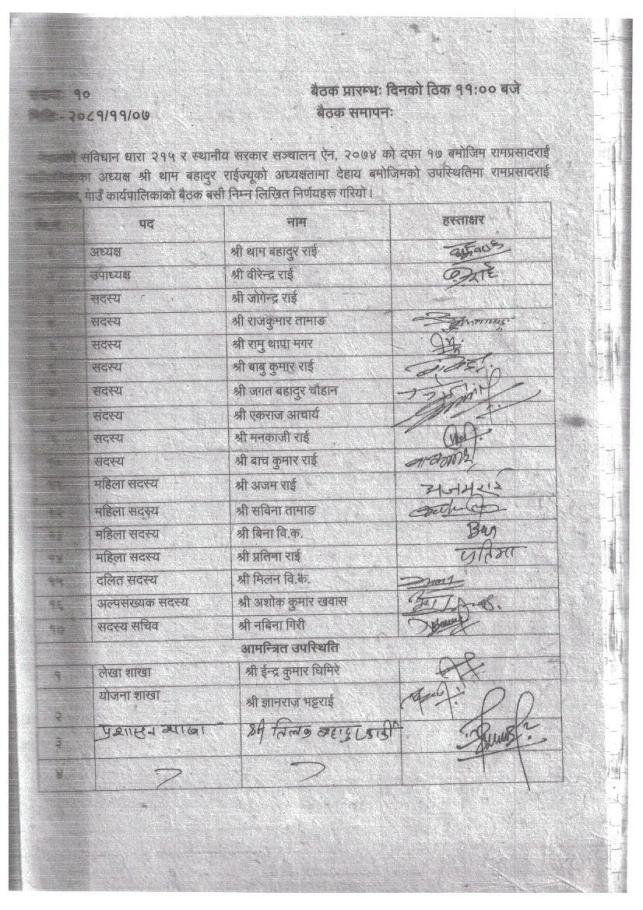 १०
बैठक प्रारम्भः दिनको ठिक ११:०० बजे
२०८१/११/०७
बैठक समापनः
संविधान धारा २१५ र स्थानीय सरकार सञ्चालन ऐन, २०७४ को दफा १७ बमोजिम रामप्रसादराई
अध्यक्ष श्री थाम बहादुर राईज्यूको अध्यक्षतामा देहाय बमोजिमको उपस्थितिमा रामप्रसादराई
गाउँ कार्यपालिकाको बैठक बसी निम्न लिखित निर्णयहरू गरियो।
पद नाम हस्ताक्षर
अध्यक्ष श्री थाम बहादुर राई
उपाध्यक्ष श्री वीरेन्द्र राई
सदस्य श्री जोगेन्द्र राई
सदस्य श्री राजकुमार तामाङ
सदस्य श्री रामु थापा मगर
सदस्य श्री बाबु कुमार राई
सदस्य श्री जगत बहादुर चौहान
सदस्य श्री एकराज आचार्य
सदस्य श्री मनकाजी राई
सदस्य श्री बाच कुमार राई
महिला सदस्य श्री अजम राई अजमराई
महिला सदस्य श्री सविना तामाङ
महिला सदस्य श्री बिना वि.क.
१४ महिला सदस्य श्री प्रतिमा राई प्रतिमा
१५ दलित सदस्य श्री मिलन वि.क.
१६ अल्पसख्यक सदस्य श्री अशोक कुमार खवास
१७ सदस्य सचिव श्री नबिना गिरी
आमन्त्रित उपस्थिति
१ लेखा शाखा श्री ईन्द्र कुमार घिमिरे
२ योजना शाखा श्री ज्ञानराज भट्टराई
३ प्रशासन शाखा श्री तिलक बहादुर कार्की
४